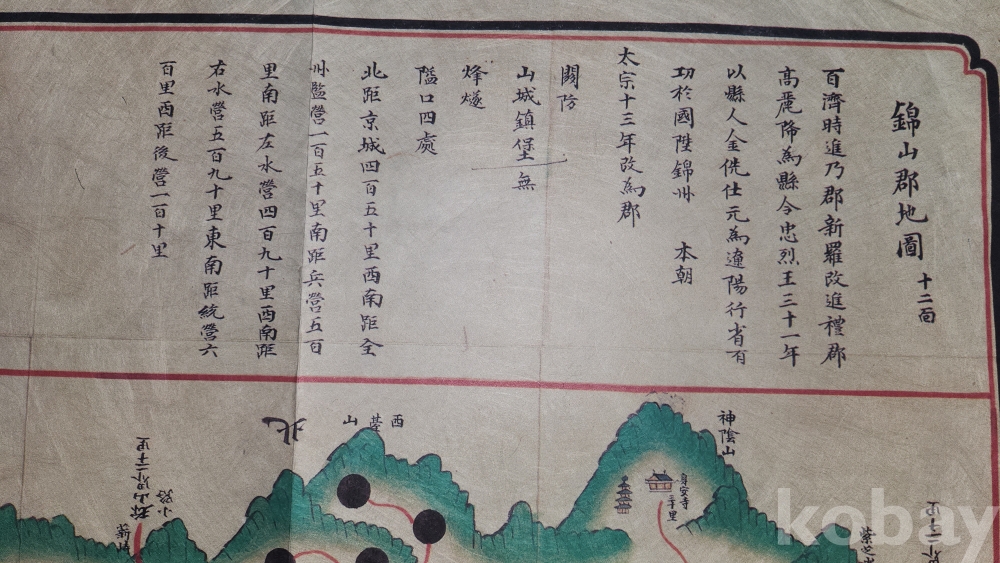 錦山郡地圖 十二面
百濟時進乃郡新羅改進禮郡
高麗降為縣令忠烈王三十一年
以縣人金侁仕元為遼陽行省有
功於國陞錦州 本朝
太宗十三年改為郡
關防
山城鎭堡 無
烽燧
隘口四處
北距京城四百五十里西南距全
州監營一百五十里南距兵營五百
里南距左水營四百九十里西南距
右水營五百九十里東南距統營六
百里西距後營一百十里
北
西臺山
神陰山
身安寺
三十里
小路
kobay